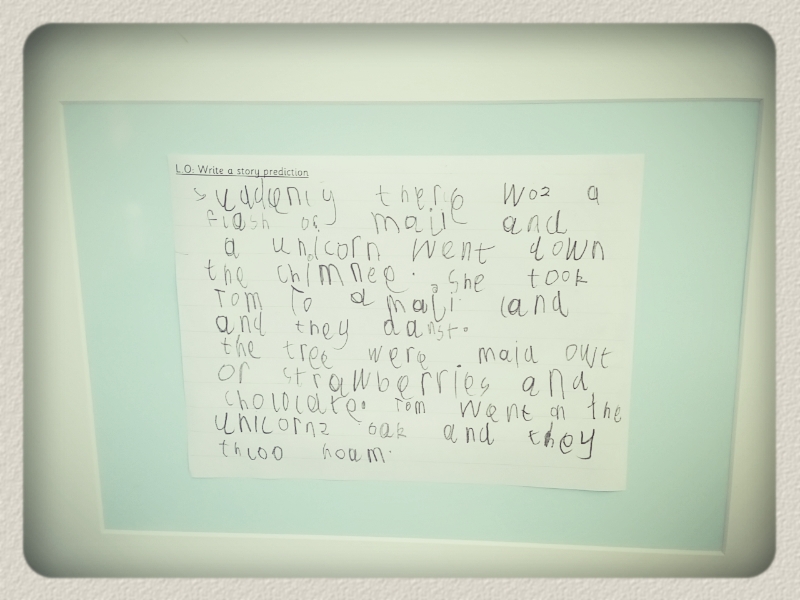 L.O: Write a story prediction
suddenly there woz a
flash of maji and
a unicorn went down
the chimnee. she took
Tom To a maji land
and they danst.
the tree were maid owt
of strawberries and
chocolate. Tom went on the
unicornz bak and they
floo hoam.